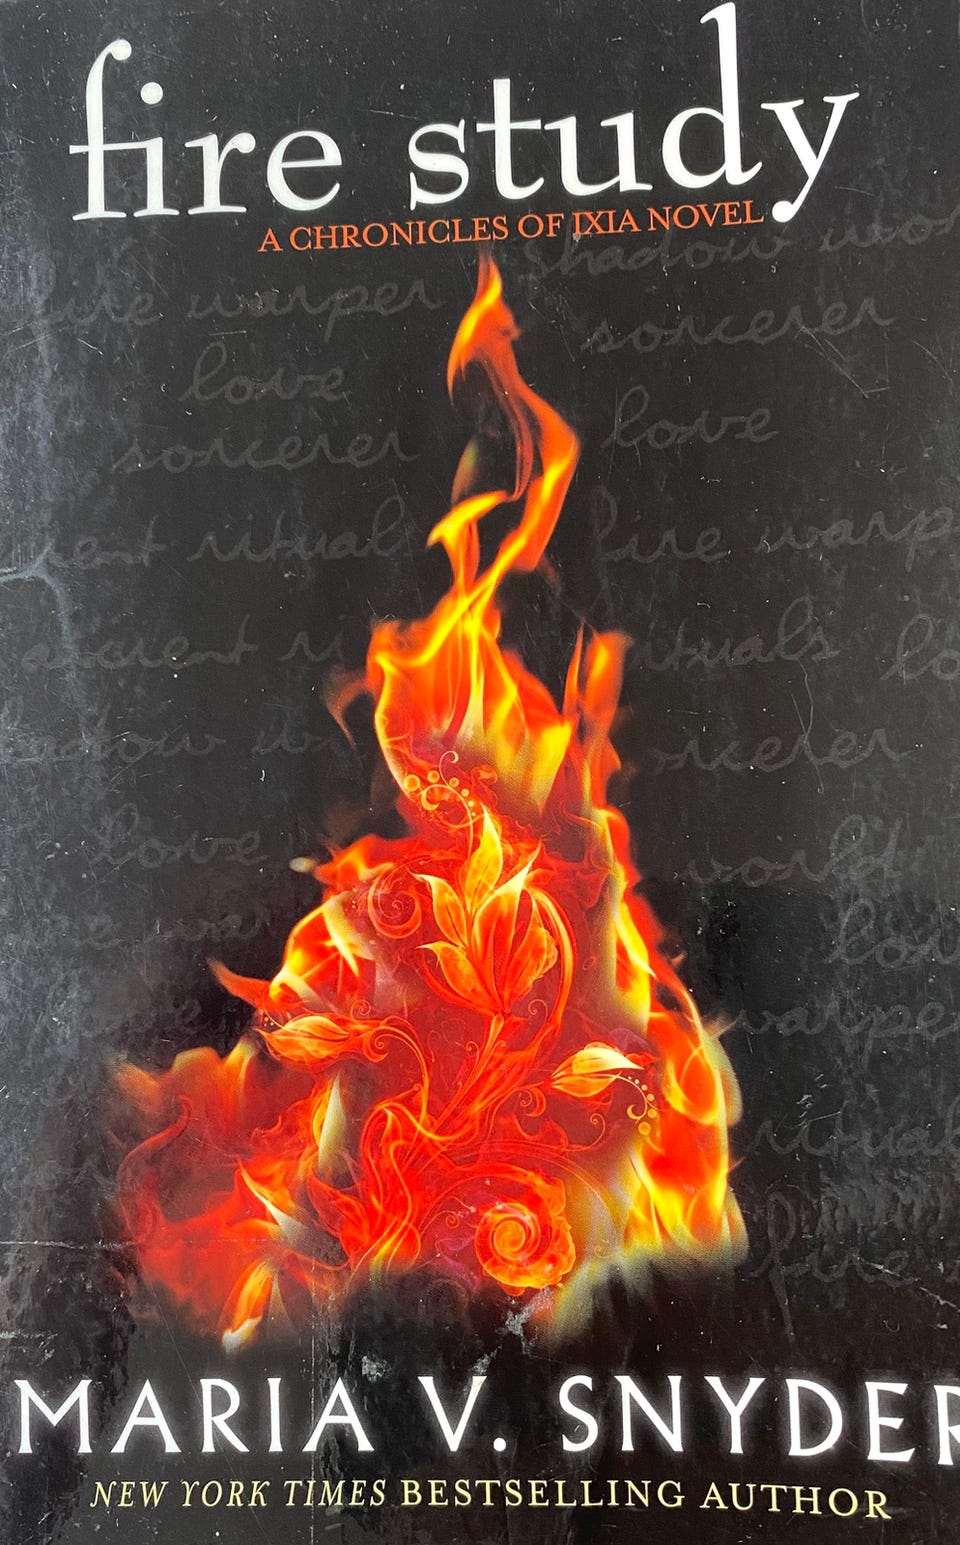 fire study
A CHRONICLES OF IXIA NOVEL
shadow
fire warper
sorcerer
love
love
sorcerer
ritual
fire warp
ancient
rituals
love
world
warpe
ritual
fire
MARIA V. SNYDER
NEW YORK TIMES BESTSELLING AUTHOR